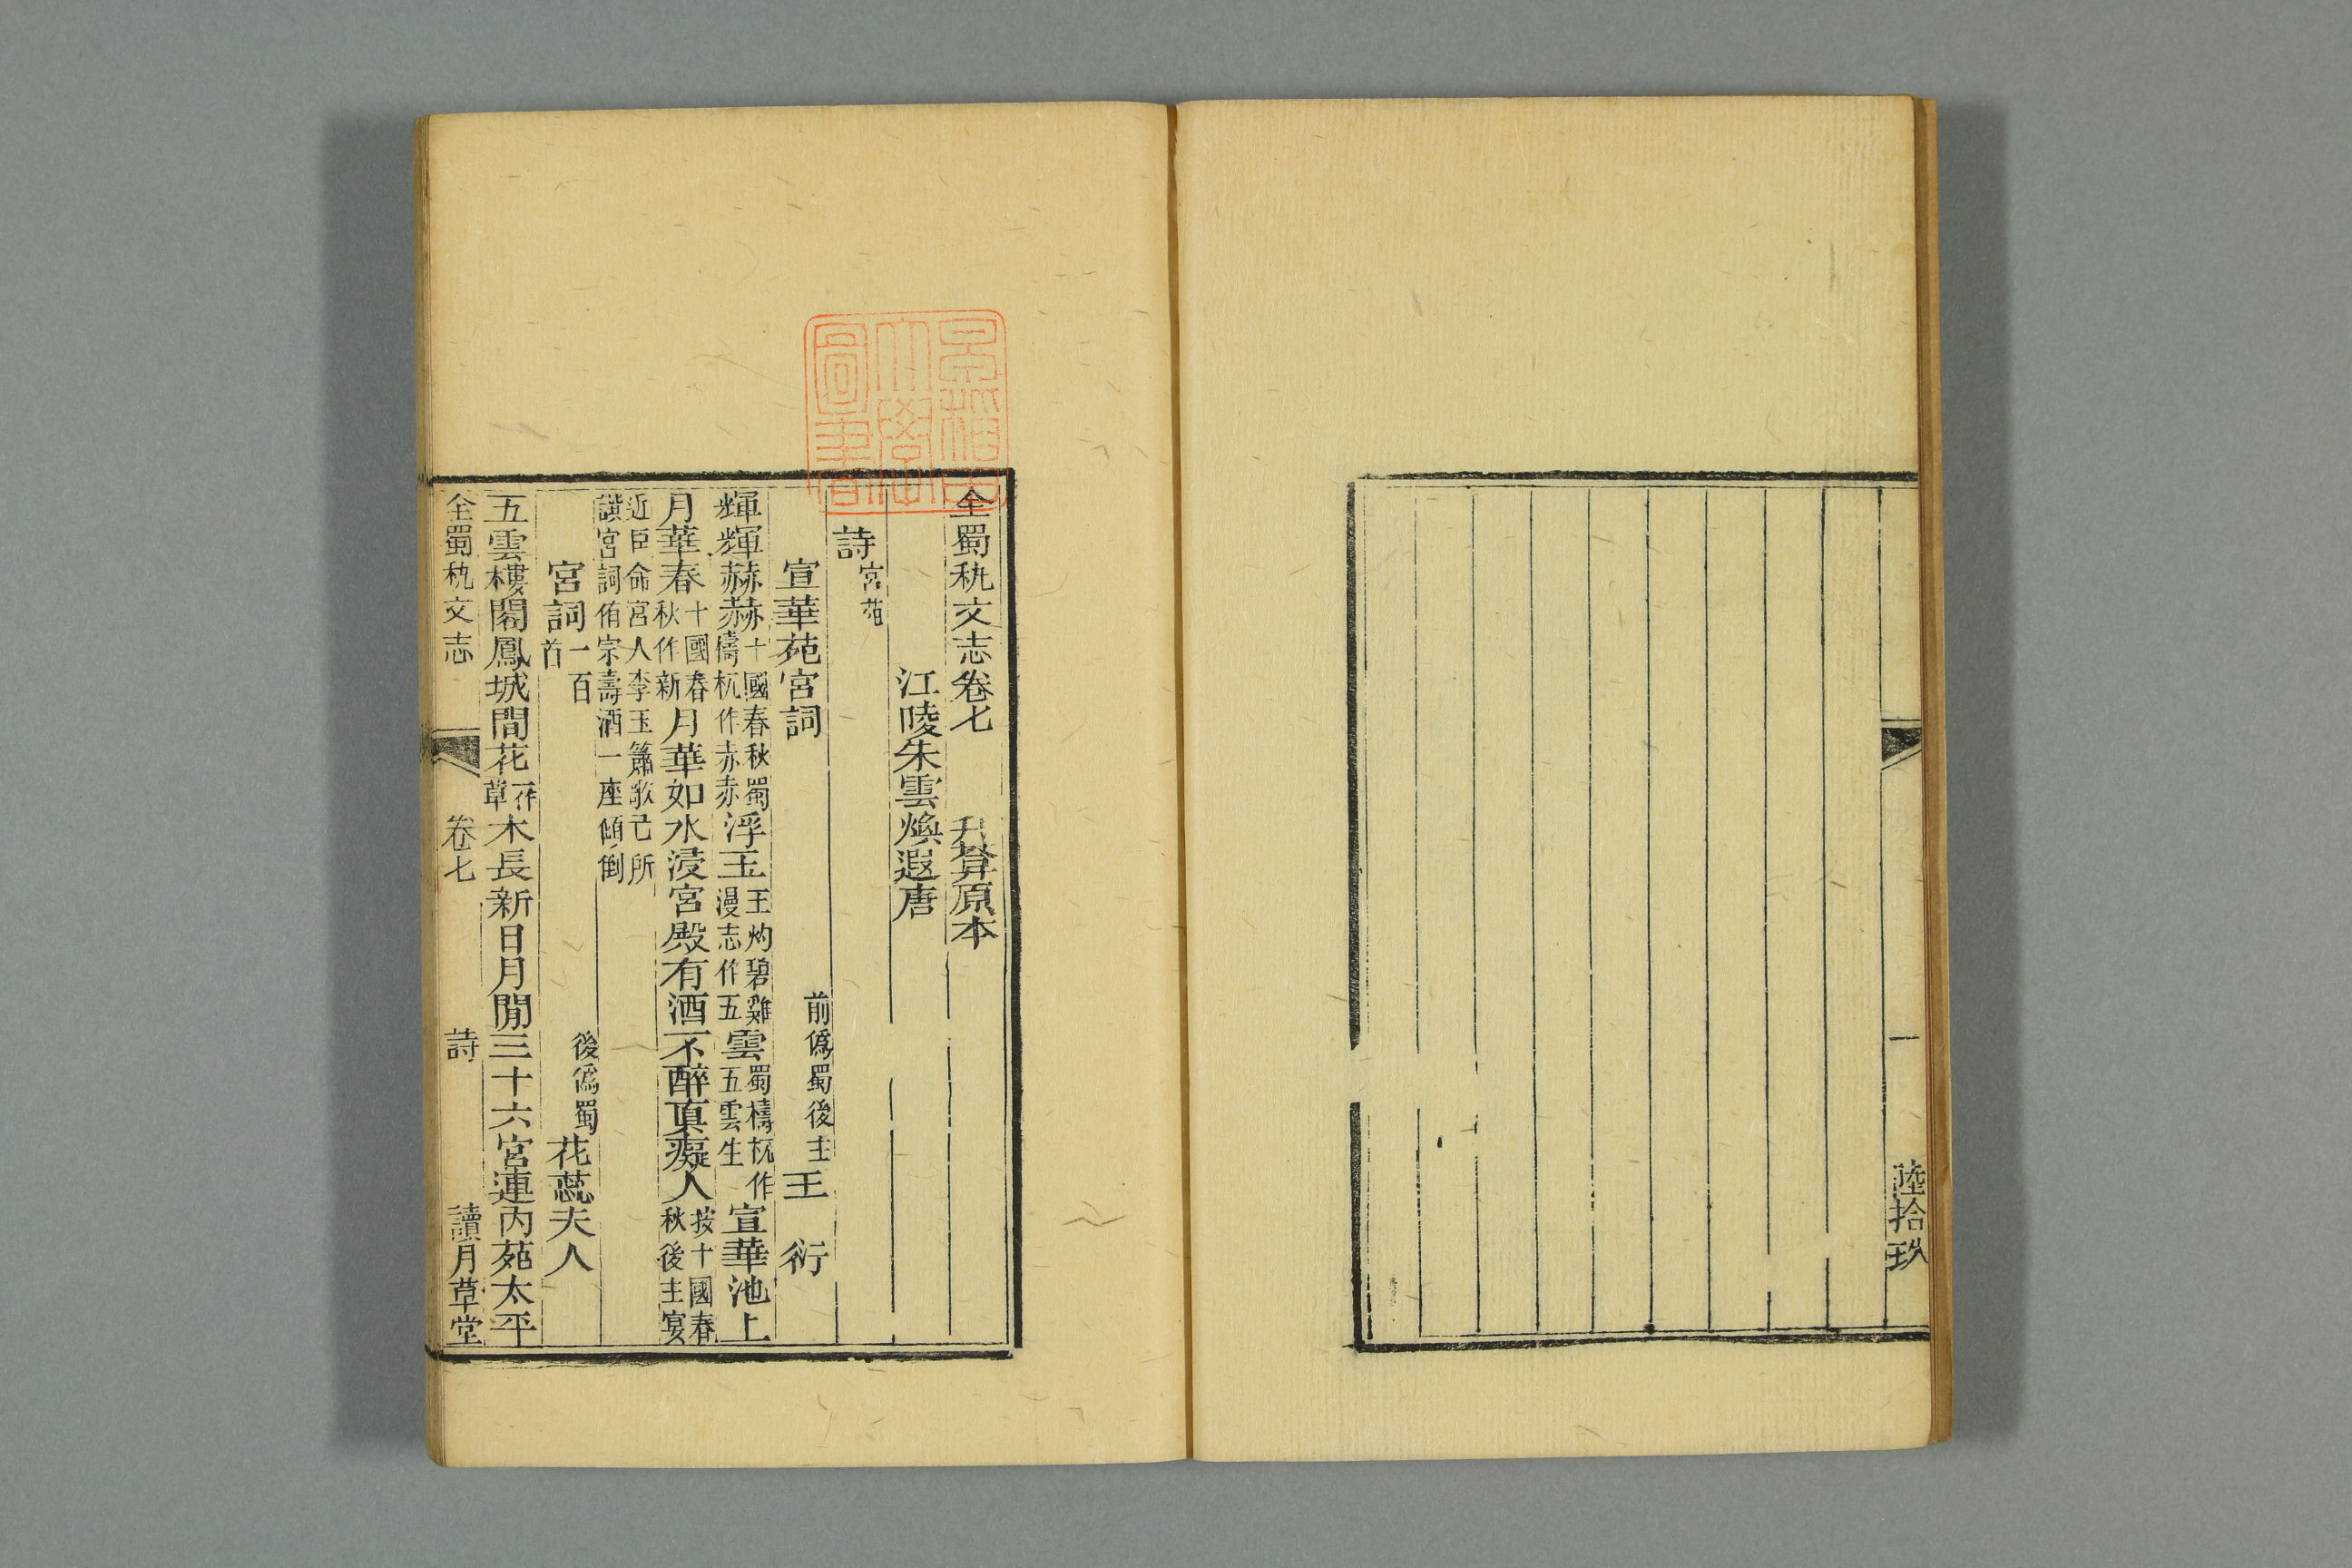 一 陸拾玖
早稻田大學圖書
全蜀秇文志卷七 升菴原本
江陵朱雲煥遐唐
詩 宮苑
宣華苑宮詞 前僞蜀後主 王 衍
輝輝赫赫十國春秋蜀檮杌作赤赤浮玉王灼碧雞漫志作五雲蜀檮杌作五雲生宣華池上
月華春十國春秋作新月華如水浸宮殿有酒不醉真癡人按十國春秋後主宴
近臣命宮人李玉簫歌己所譔宮詞侑宗壽酒一座傾倒
宮詞一百首 後僞蜀花蕊夫人
五雲樓閣鳳城間花一作草木長新日月閒三十六宮連內苑太平
全蜀秇文志 卷七 詩 讀月草堂